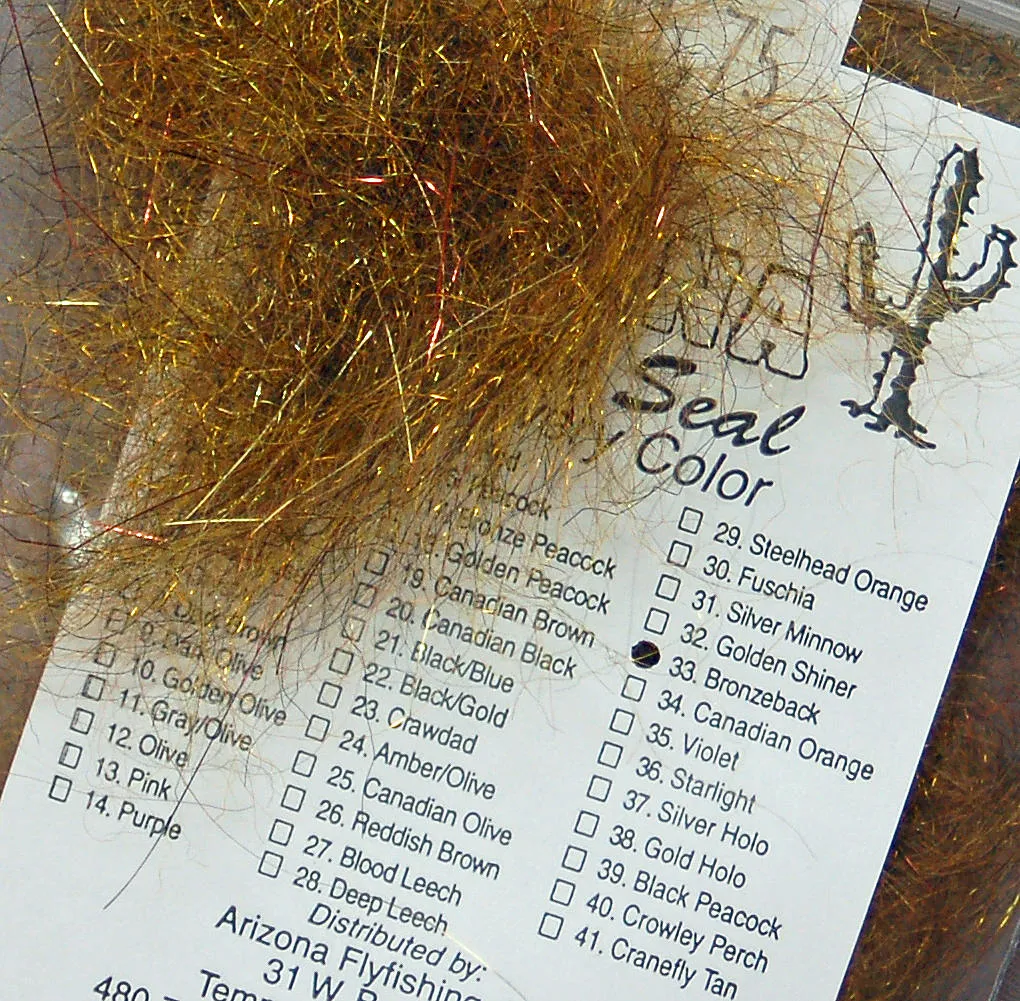 75
Seal
Color
Dark Brown
9. Dark Olive
10. Golden Olive
11. Gray/Olive
12. Olive
13. Pink
14. Purple
Peacock
Bronze Peacock
18. Golden Peacock
19. Canadian Brown
20. Canadian Black
21. Black/Blue
22. Black/Gold
23. Crawdad
24. Amber/Olive
25. Canadian Olive
26. Reddish Brown
27. Blood Leech
28. Deep Leech
29. Steelhead Orange
30. Fuschia
31. Silver Minnow
32. Golden Shiner
33. Bronzeback
34. Canadian Orange
35. Violet
36. Starlight
37. Silver Holo
38. Gold Holo
39. Black Peacock
40. Crowley Perch
41. Cranefly Tan
Distributed by:
Arizona Flyfishing
31 W
480